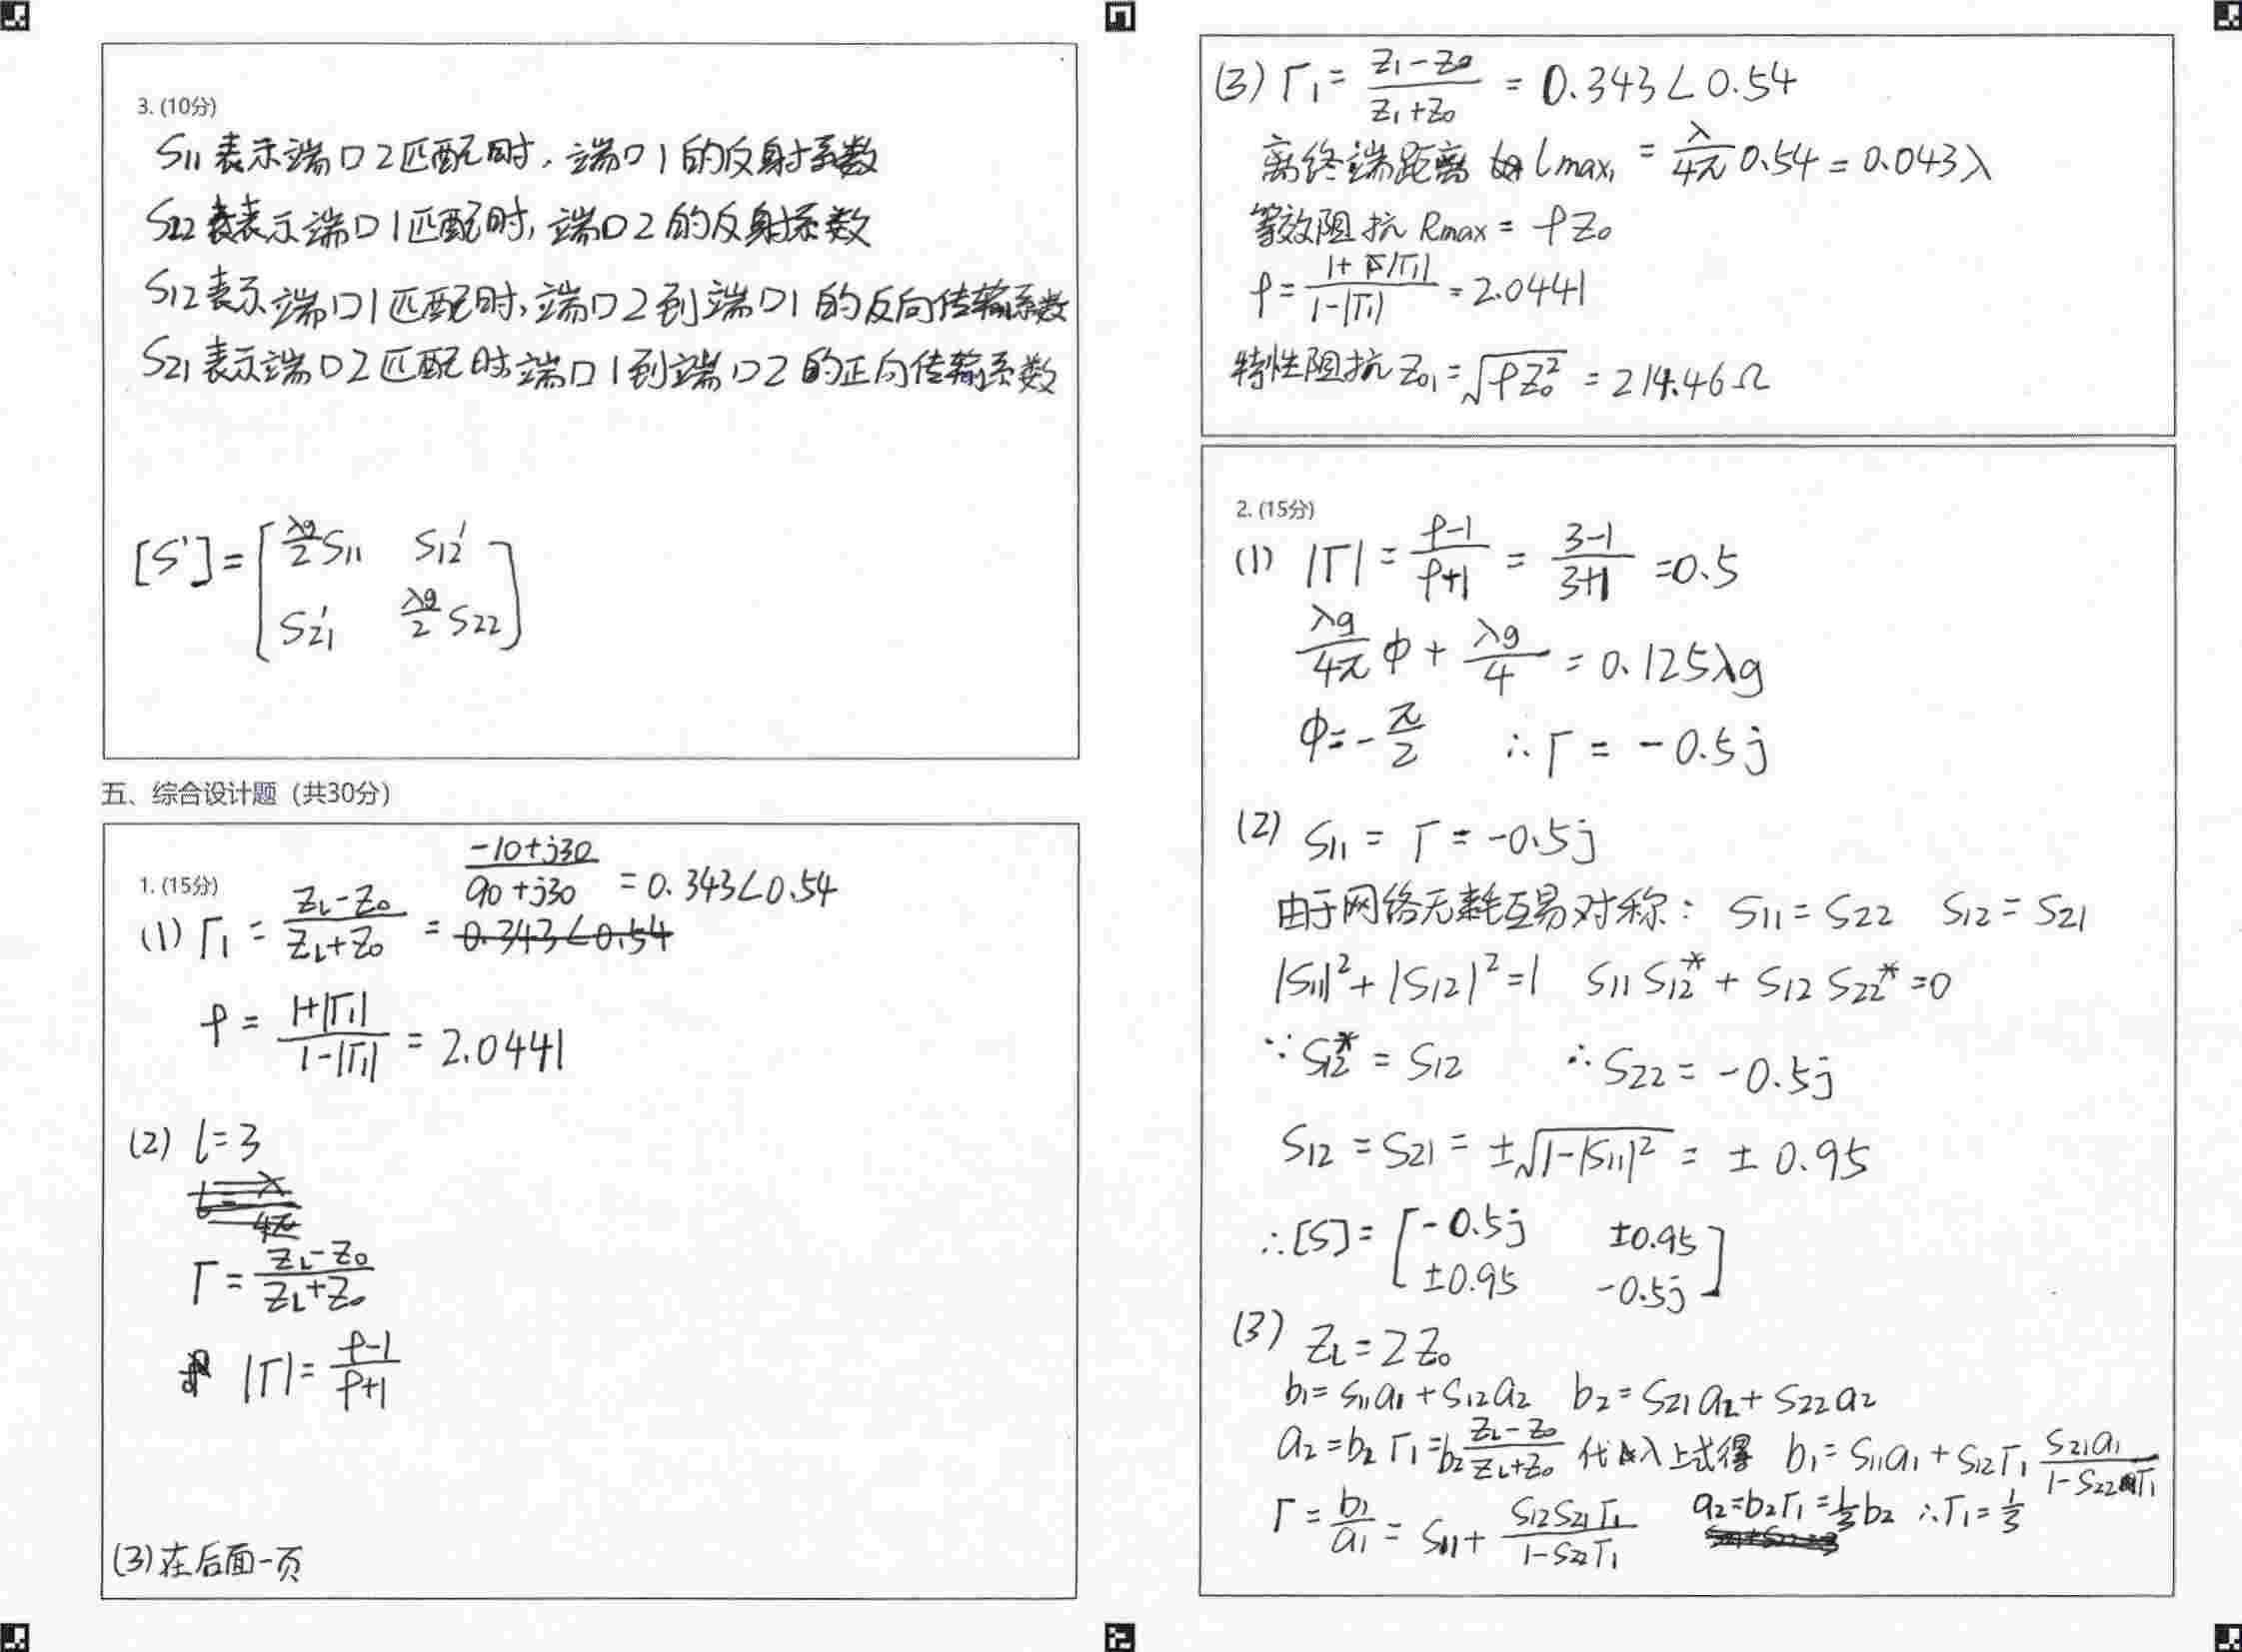 3. (10分)
S11 表示端口2匹配时，端口1的反射系数
S22 表示端口1匹配时，端口2的反射系数
S12 表示端口1匹配时，端口2到端口1的反向传输系数
S21 表示端口2匹配时，端口1到端口2的正向传输系数
[S'] = [ λg/2 S11 S12'
S21' λg/2 S22 ]
五、综合设计题（共30分）
1. (15分)
(1) Γ1 = (ZL-Z0)/(ZL+Z0) = (-10+j30)/(90+j30) = 0.343∠0.54
ρ = (1+|Γ1|)/(1-|Γ1|) = 2.0441
(2) l=3
Γ = (ZL-Z0)/(ZL+Z0)
|Γ| = (ρ-1)/(ρ+1)
(3) 在后面一页
(3) Γ1 = (Z1-Z0)/(Z1+Z0) = 0.343∠0.54
离终端距离 lmax1 = λ/4π 0.54 = 0.043λ
等效阻抗 Rmax = ρZ0
ρ = (1+|Γ1|)/(1-|Γ1|) = 2.0441
特性阻抗 Z01 = √(ρZ0²) = 214.46Ω
2. (15分)
(1) |Γ| = (ρ-1)/(ρ+1) = (3-1)/(3+1) = 0.5
λg/4π Φ + λg/4 = 0.125λg
Φ = -π/2 ∴ Γ = -0.5j
(2) S11 = Γ = -0.5j
由于网络无耗互易对称： S11 = S22 S12 = S21
|S11|² + |S12|² = 1 S11 S12* + S12 S22* = 0
∵ S12* = S12 ∴ S22 = -0.5j
S12 = S21 = ±√(1-|S11|²) = ± 0.95
∴ [S] = [ -0.5j ±0.95
±0.95 -0.5j ]
(3) ZL = 2Z0
b1 = S11a1 + S12a2 b2 = S21a2 + S22a2
a2 = b2Γ1 = b2 (ZL-Z0)/(ZL+Z0) 代入上式得 b1 = S11a1 + S12Γ1 S21a1/(1-S22Γ1)
Γ = b1/a1 = S11 + S12S21Γ1/(1-S22Γ1) a2 = b2Γ1 = 1/3 b2 ∴ Γ1 = 1/3